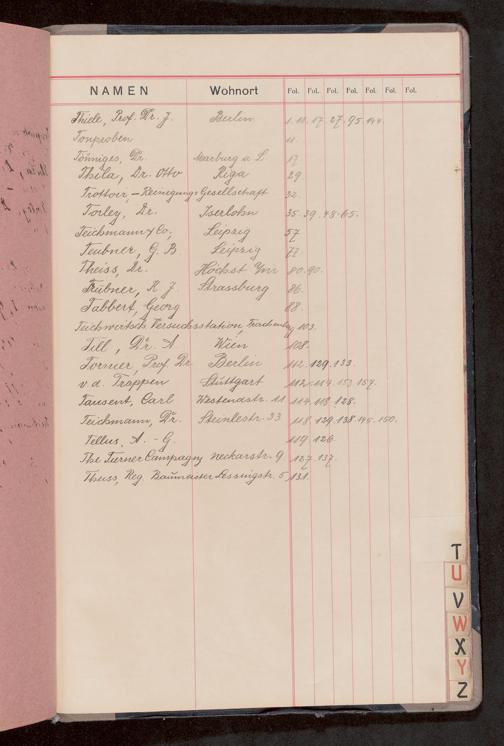 NAMEN Wohnort Fol. Fol. Fol. Fol. Fol. Fol. Fol.
Thiele, Prof. Dr. J. Berlin 1. 10. 17. 27. 95. 144.
Tonproben 11.
Tönniges, Dr. Marburg a L. 17
Thila, Dr. Otto Riga 29.
Trottoir-Reinigungs Gesellschaft 32.
Torley, Dr. Iserlohn 35. 39. 48. 65.
Teichmann & Co, Leipzig 57
Teubner, G. B. Leipzig 77.
Theiss, Dr. Höchst 80. 90.
Trübner, K J. Strassburg 86.
Tabbert, Georg 88.
Teichwirtsch. Versuchsstation, Trachenberg 103.
Till, Dr. A Wien 108.
Tornier, Prof Dr Berlin 112. 129. 133.
v. d. Trappen Stuttgart 112. 114. 153. 157.
Tausent, Carl Westendstr. 11 114. 118. 128.
Teichmann, Dr. Steinlestr. 33 118. 129. 138. 145. 150.
Tellus, A.-G. 119 126.
The Turner Campagny Neckarstr. 9 127. 137.
Theiss, Reg. Baumeister Lessingstr. 5 131.
T
U
V
W
X
Y
Z